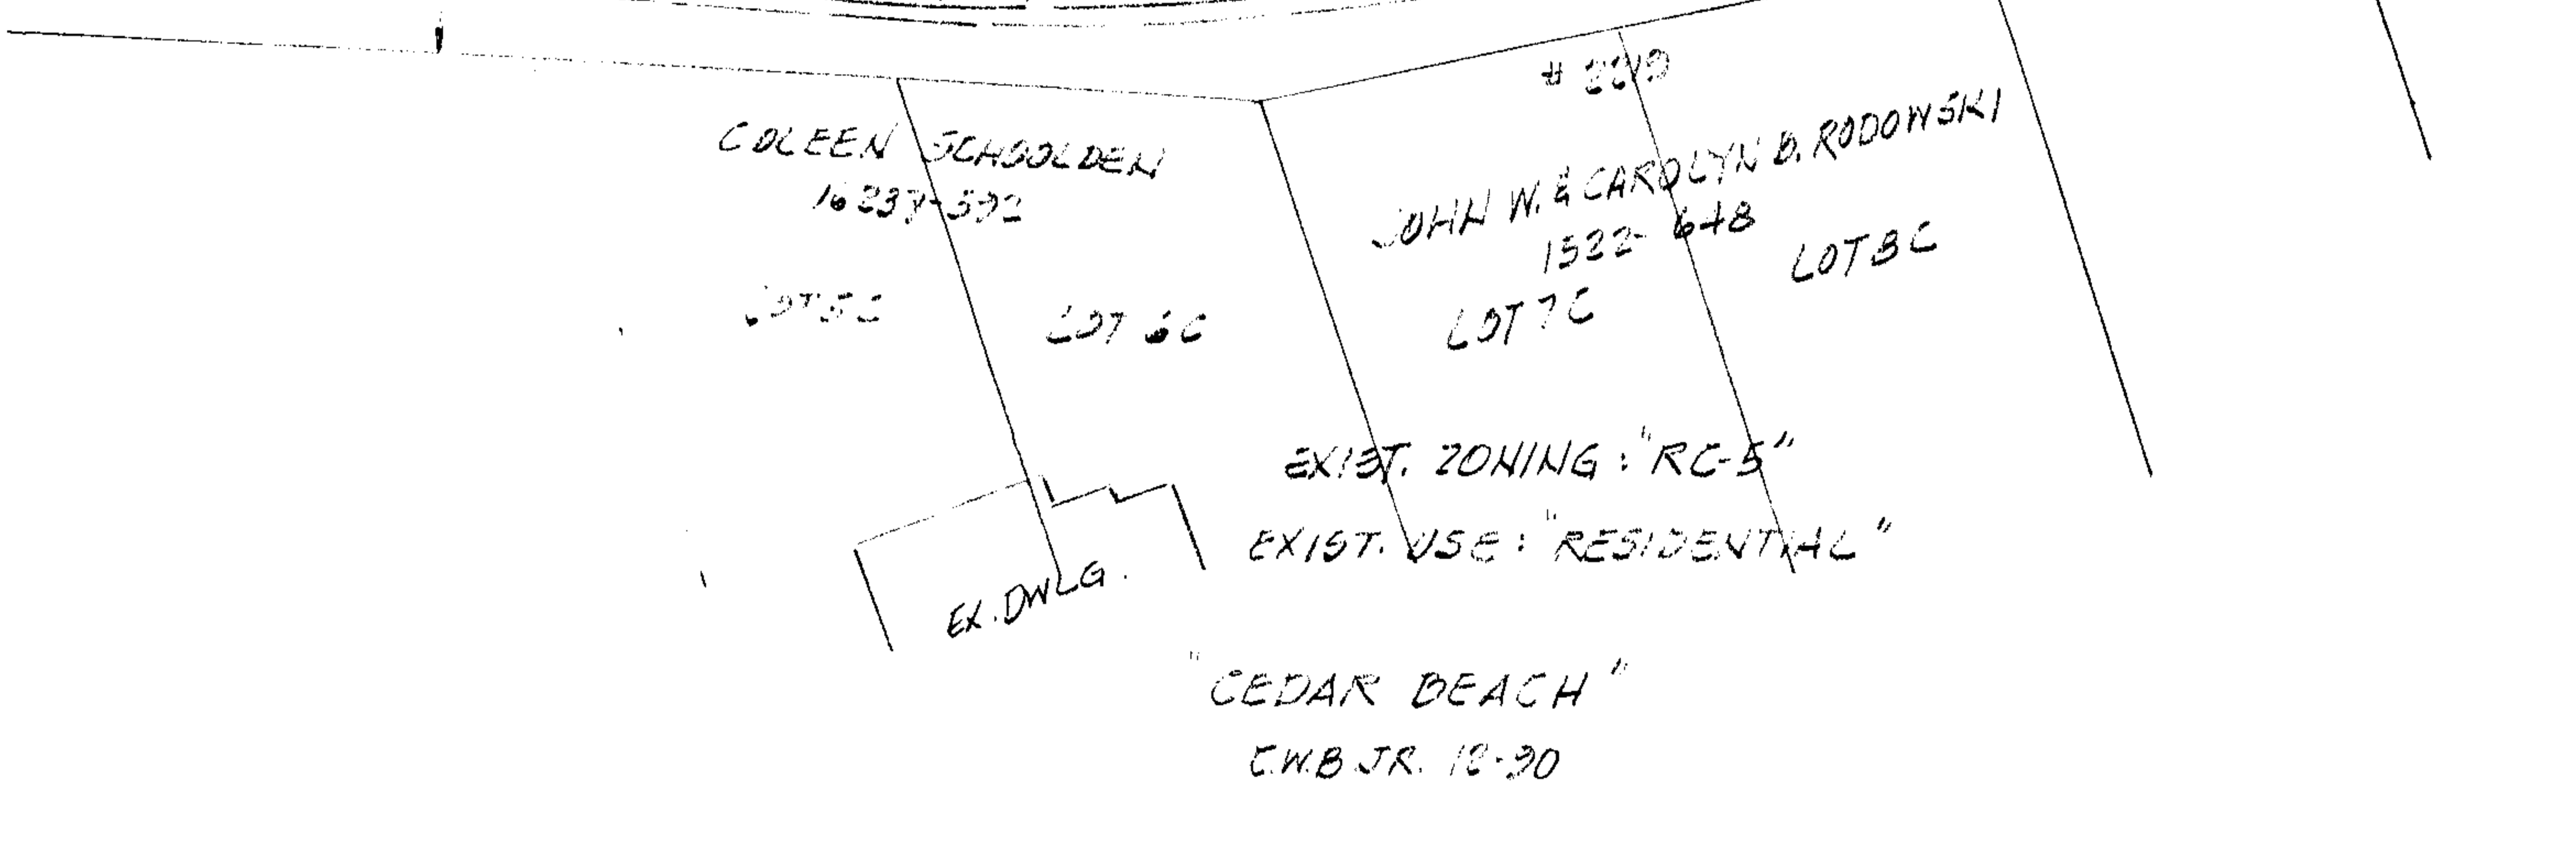 # 2219
COLEEN SCHOOLDEN
JOHN W. & CAROLYN B. RODOWSKI
1522- 648
LOT 5C
LOT 6C
LOT 7C
LOT 8C
EXIST. ZONING : "RC-5"
EXIST. USE : "RESIDENTIAL"
EX. DWLG.
"CEDAR BEACH"
C.W.B JR. 12-90